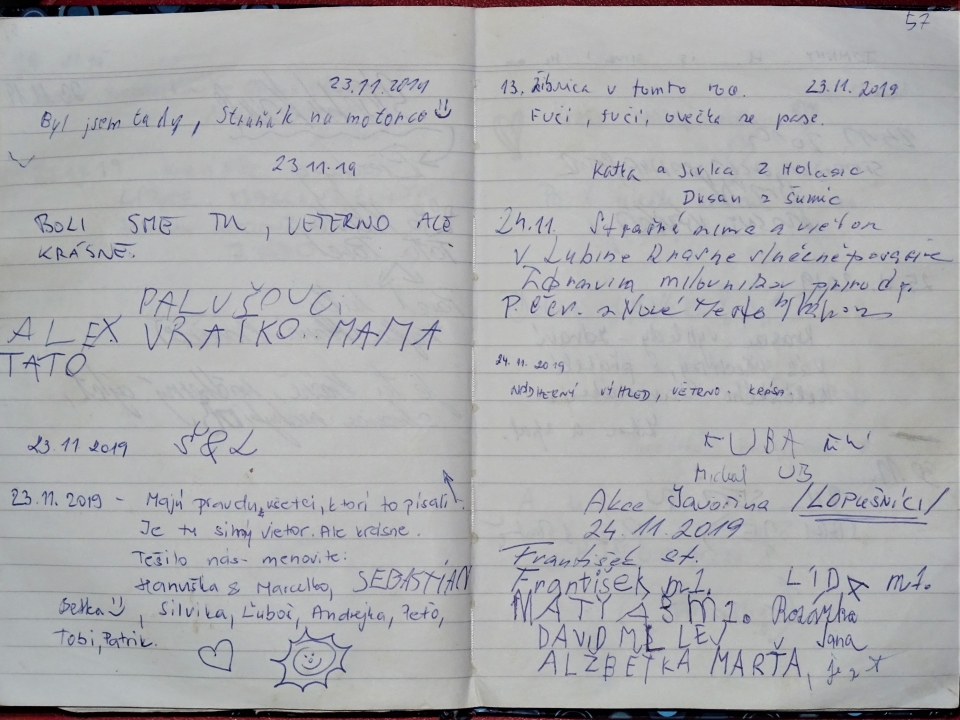 23.11.2019
Byl jsem tady, Straňák na motorce
23.11.19
BOLI SME TU, VETERNO ALE
KRÁSNĚ.
PALUŠOVCI
ALEX VRATKO.. MAMA
TATO
23.11 2019
23.11.2019 - Majú pravdu všetci, ktorí to písali.
Je tu silný vietor. Ale krásne.
Tešilo nás menovite:
Hanuška & Marcelko, SEBASTIÁN
Betka, Silvika, Ľuboš, Andrejka, Peťo,
Tobi, Patrik.
57
13. Žibrica v tomto roo. 23.11.2019
Fučí, fučí, ovečka se pase.
Katka a Jirka z Holasic
Dusan z Šumic
24.11. Strašná zima a vietor
v Lubine krásne slnečné
Zdravím milovníkov prírody.
P. Čer. z Nové Mesto n/Váhom
24.11.2019
NÁDHERNÝ VÝHLED, VĚTERNO. KRÁSA.
KUBA
Michal UB
Akce Javořina /LOPUŠNÍCI/
24.11.2019
František st.
František ml. LÍDA ml.
MATYÁŠ ml. Rozárka
DAVID Jana
ALŽBĚTKA MARŤA,